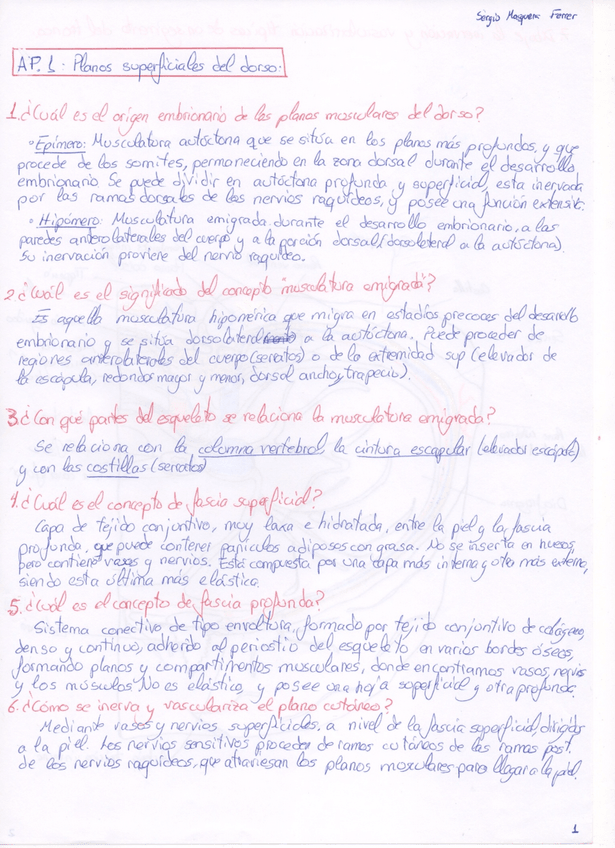 Sergio Maquera Ferrer
AP. 1: Planos superficiales del dorso:
1.¿Cuál es el origen embrionario de los planos musculares del dorso?
• Epímero: Musculatura autóctona que se sitúa en los planos más profundos, y que
procede de los somites, permaneciendo en la zona dorsal durante el desarrollo
embrionario. Se puede dividir en autóctona profunda y superficial, esta inervada
por las ramas dorsales de los nervios raquídeos, y posee una función extensib.
• Hipómero: Musculatura emigrada durante el desarrollo embrionario, a las
paredes anterolaterales del cuerpo y a la porción dorsal (dorsolateral a la autóctona).
Su inervación proviene del nervio raquídeo.
2.¿Cuál es el significado del concepto "musculatura emigrada"?
Es aquella musculatura hipomérica que migra en estadíos precoces del desarrollo
embrionario y se sitúa dorsolateral a la autóctona. Puede proceder de
regiones anterolaterales del cuerpo (serratos) o de la extremidad sup (elevador de
la escápula, redondos mayor y menor, dorsal ancho y trapecio).
3.¿Con qué partes del esqueleto se relaciona la musculatura emigrada?
Se relaciona con la columna vertebral, la cintura escapular (elevador escápula)
y con las costillas (serratos)
4.¿Cuál es el concepto de fascia superficial?
Capa de tejido conjuntivo, muy laxa e hidratada, entre la piel y la fascia
profunda, que puede contener panículos adiposos con grasa. No se inserta en huesos,
pero contiene vasos y nervios. Está compuesta por una capa más interna y otra más externa,
siendo esta última más elástica.
5.¿Cuál es el concepto de fascia profunda?
Sistema conectivo de tipo envoltura, formado por tejido conjuntivo de colágeno,
denso y continuo, adherido al periostio del esqueleto en varios bordes óseos,
formando planos y compartimentos musculares, donde encontramos vasos, nervios
y los músculos. No es elástico, y posee una hoja superficial y otra profunda.
6.¿Cómo se inerva y vasculariza el plano cutáneo?
Mediante vasos y nervios superficiales, a nivel de la fascia superficial, dirigidos
a la piel. Los nervios sensitivos proceden de ramos cutáneos de las ramas post.
de los nervios raquídeos, que atraviesan los planos musculares para llegar a la piel.
1